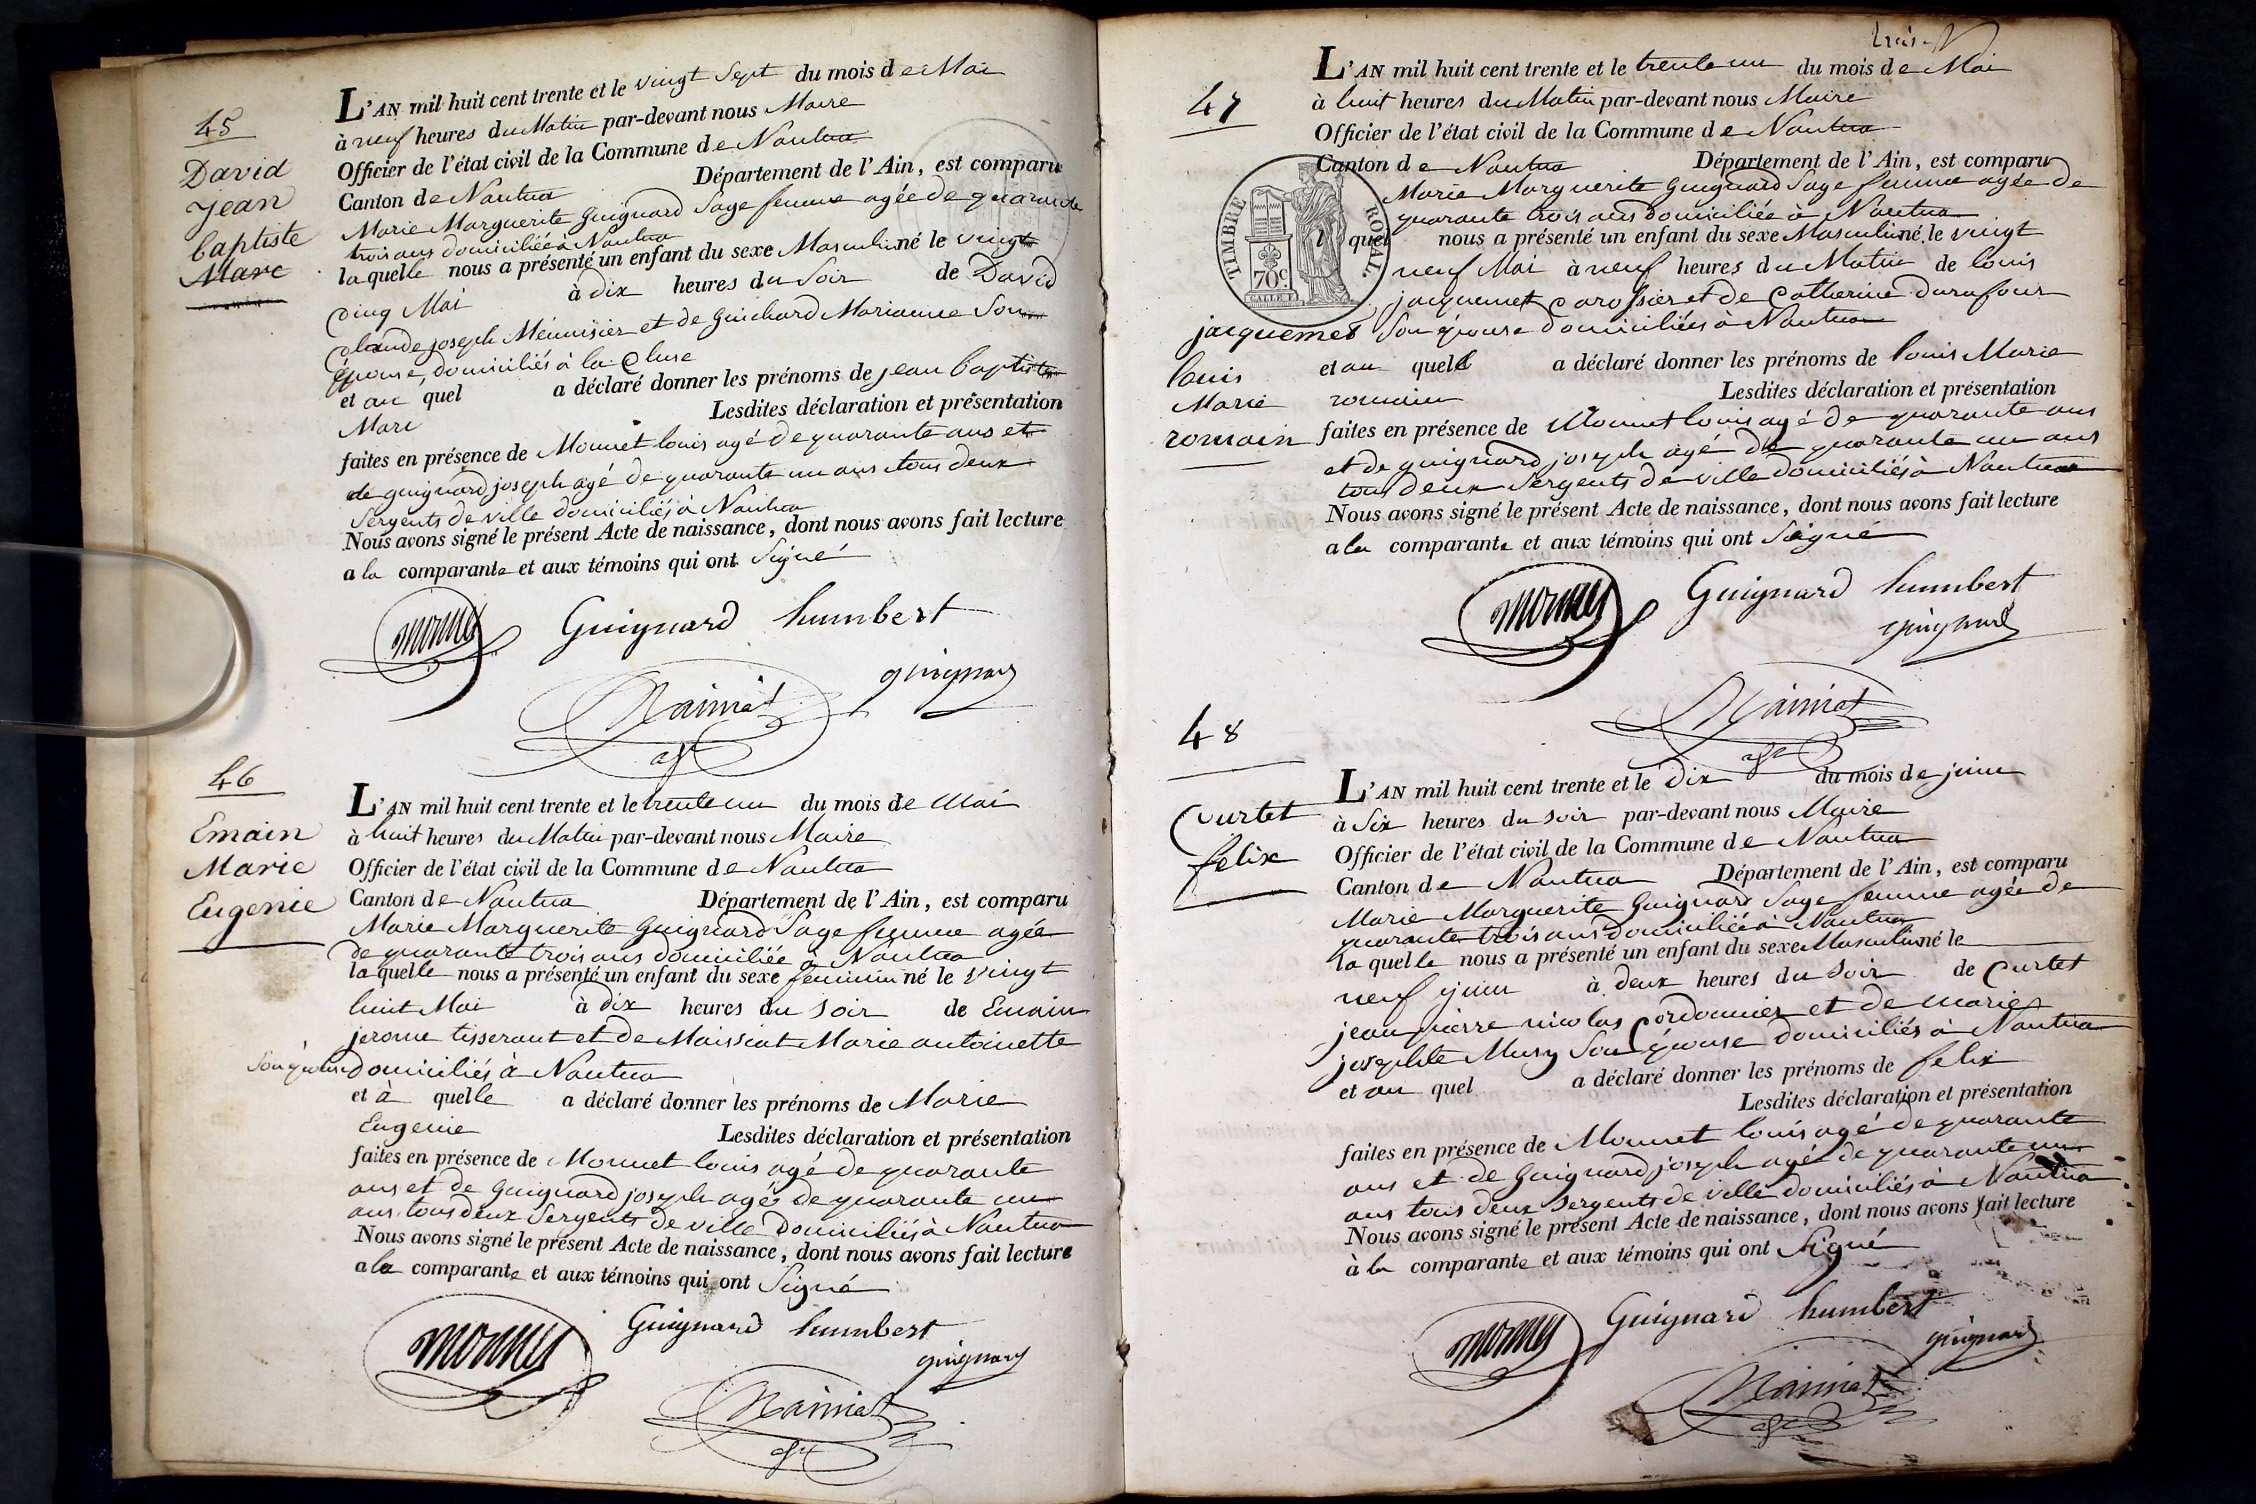 45
David
Jean
baptiste
Marc
L'AN mil huit cent trente et le vingt Sept du mois de Mai
à neuf heures du Matin par-devant nous Maire
Officier de l'état civil de la Commune de Nantua
Canton de Nantua Département de l'Ain, est comparu
Marie Marguerite Guignard Sage femme agée de quarante
trois ans domiciliée à Nantua
laquelle nous a présenté un enfant du sexe Masculin né le vingt
Cinq Mai à dix heures du Soir de David
Claude joseph Ménuisier et de Guichard Marianne Son
épouse, domiciliés à la Cluse
et au quel a déclaré donner les prénoms de jean baptiste
Marc Lesdites déclaration et présentation
faites en présence de Monnet louis agé de quarante ans et
de guignard joseph agé de quarante un ans tous deux
Sergents de ville domiciliés à Nantua
Nous avons signé le présent Acte de naissance, dont nous avons fait lecture
a la comparante et aux témoins qui ont Signé
monnet Guignard humbert
guignard
46
Emain
Marie
Eugenie
L'AN mil huit cent trente et le trente un du mois de Mai
à huit heures du Matin par-devant nous Maire
Officier de l'état civil de la Commune de Nantua
Canton de Nantua Département de l'Ain, est comparu
Marie Marguerite Guignard Sage femme agée
de quarante trois ans domiciliée à Nantua
laquelle nous a présenté un enfant du sexe feminin né le vingt
huit Mai à dix heures du soir de Emain
jerome tisserant et de Maissiat Marie antoinette
Son épouse domiciliés à Nantua
et à quelle a déclaré donner les prénoms de Marie
Eugenie Lesdites déclaration et présentation
faites en présence de Monnet louis agé de quarante
ans et de Guignard joseph agé de quarante un
ans tous deux Sergents de ville domiciliés à Nantua
Nous avons signé le présent Acte de naissance, dont nous avons fait lecture
a la comparante et aux témoins qui ont Signé
monnet Guignard humbert
guignard
47
jacquemet
louis
Marie
romain
TIMBRE ROYAL.
70c
L'AN mil huit cent trente et le trente un du mois de Mai
à huit heures du Matin par-devant nous Maire
Officier de l'état civil de la Commune de Nantua
Canton de Nantua Département de l'Ain, est comparu
Marie Marguerite Guignard Sage femme agée de
quarante trois ans domiciliée à Nantua
l quel nous a présenté un enfant du sexe Masculin né le vingt
neuf Mai à neuf heures du Matin de louis
jacquemet carossier et de Catherine durafour
Son épouse domiciliés à Nantua
et au quel a déclaré donner les prénoms de louis Marie
romain Lesdites déclaration et présentation
faites en présence de Monnet louis agé de quarante ans
et de guignard joseph agé de quarante un ans
tous deux Sergents de ville domiciliés à Nantua
Nous avons signé le présent Acte de naissance, dont nous avons fait lecture
a la comparante et aux témoins qui ont Signé
monnet Guignard humbert
guignard
48
Curtet
felix
L'AN mil huit cent trente et le dix du mois de juin
à Six heures du soir par-devant nous Maire
Officier de l'état civil de la Commune de Nantua
Canton de Nantua Département de l'Ain, est comparu
Marie Marguerite Guignard Sage femme agée de
quarante trois ans domiciliée à Nantua
la quelle nous a présenté un enfant du sexe Masculin né le
neuf juin à deux heures du soir de Curtet
jean pierre nicolas Cordonnier et de marie
josephte Musy Son épouse domiciliés à Nantua
et au quel a déclaré donner les prénoms de felix
Lesdites déclaration et présentation
faites en présence de Monnet louis agé de quarante
ans et de Guignard joseph agé de quarante un
ans tous deux sergents de ville domiciliés à Nantua
Nous avons signé le présent Acte de naissance, dont nous avons fait lecture
à la comparante et aux témoins qui ont Signé
monnet Guignard humbert
guignard